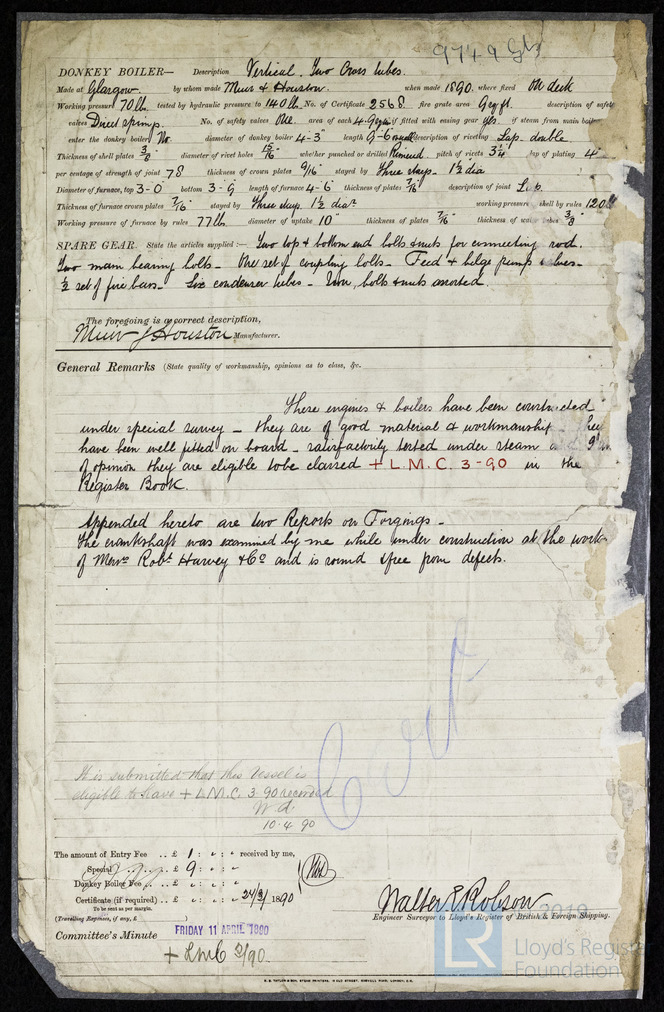 9749 Gls
DONKEY BOILER— Description Vertical. Two Cross tubes.
Made at Glasgow by whom made Muir & Houston when made 1890. where fixed On deck
Working pressure 70 lb. tested by hydraulic pressure to 140 lb. No. of Certificate 2568. fire grate area 9 sq ft. description of safety
valves Direct spring. No. of safety valves One. area of each 4.9 if fitted with easing gear yes. if steam from main boilers
enter the donkey boiler No. diameter of donkey boiler 4-3" length 9-6 description of riveting Lap. double
Thickness of shell plates 3/8" diameter of rivet holes 15/16 whether punched or drilled Rimered pitch of rivets 3 1/4 lap of plating 4"
per centage of strength of joint 78 thickness of crown plates 9/16" stayed by Three stays. 1 1/2 dia
Diameter of furnace, top 3-0" bottom 3-9 length of furnace 4-6" thickness of plates 7/16" description of joint Lap.
Thickness of furnace crown plates 7/16" stayed by Three stays. 1 1/2 diar working pressure shell by rules 120 lb
Working pressure of furnace by rules 77 lb. diameter of uptake 10" thickness of plates 7/16" thickness of water tubes 3/8"
SPARE GEAR. State the articles supplied:— Two top & bottom end bolts & nuts for connecting rod.
Two main bearing bolts— One set of coupling bolts— Feed & bilge pump
1/2 set of fire bars— Six condenser tubes— Iron, bolts & nuts assorted.
The foregoing is a correct description,
Muir & Houston Manufacturer.
General Remarks (State quality of workmanship, opinions as to class, &c.
These engines & boilers have been constructed
under special survey— they are of good material & workmanship— They
have been well fitted on board— satisfactorily tested under steam and I'm
of opinion they are eligible to be classed + L.M.C. 3-90 in the
Register Book.
Appended hereto are two Reports on Forgings—
The crankshaft was examined by me while under construction at the works
of Messrs Robt Harvey & Co and is sound & free from defects.
It is submitted that this Vessel is
eligible to have + L.M.C. 3.90 recorded
10.4.90
The amount of Entry Fee .. £ 1 : " : " received by me,
Special .. £ 9 : " : "
Donkey Boiler Fee .. £ " : " : "
Certificate (if required) .. £ " : " : " 24/3/1890
To be sent as per margin.
(Travelling Expenses, if any, £ )
Walter E Robson
Engineer Surveyor to Lloyd's Register of British & Foreign Shipping.
Committee's Minute FRIDAY 11 APRIL 1890
+ LMC 3/90.
2019
LR
Lloyd's Register
Foundation